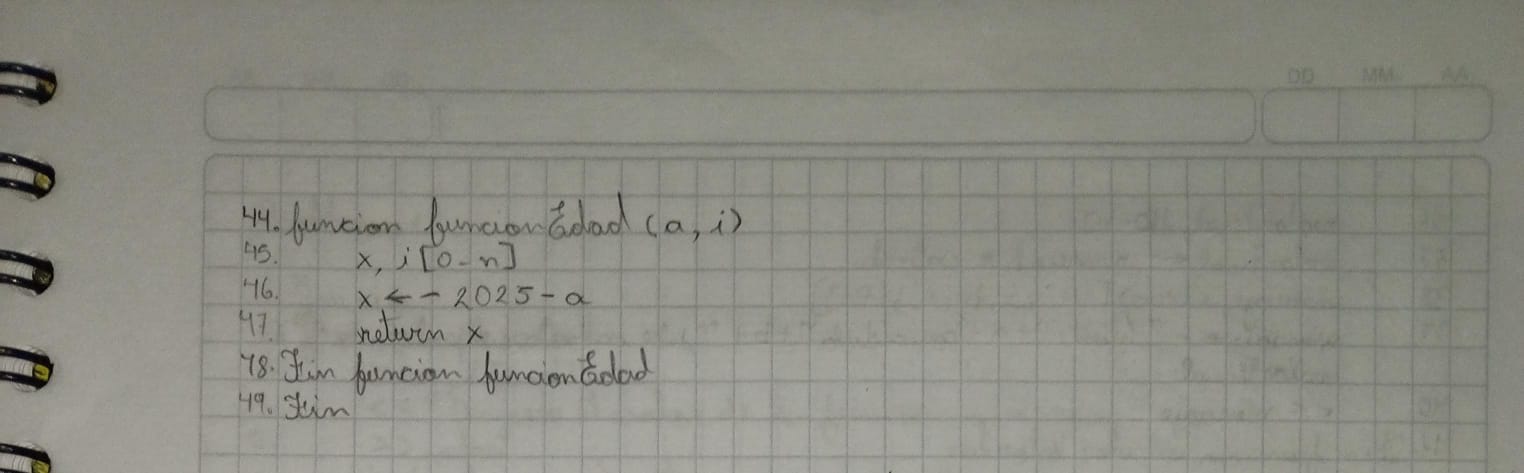 DD MM AA
44. funcion funcionEdad (a, i)
45. x, i [0-n]
46. x <-- 2025-a
47. return x
48. Fin funcion funcionEdad
49. Fin